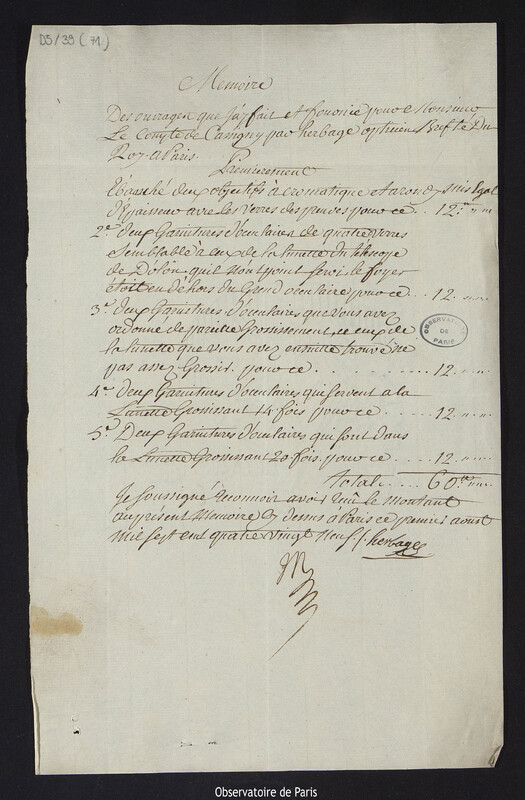 D5/39 (71)
Memoire
Des ouvrages que j'ay fait et fournie pour Monsieur
Le Comte de Cassigny par herbage opticien Brefté Du
Roy a Paris.
Premierement
Ebauché deux objectifs acromatique et arondy mis Egal
D'Epaisseur avec les verres des preuves pour ce .. 12.
2e deux Garnitures d'oculaires de quatre verres
semblable à ceux de la lunette du telescope
de Dólon, qui n'ont point servis le foyer
étoit en dehors du Grand oculaire pour ce ... 12.
3e deux Garnitures d'oculaires que vous avez
ordonné de pareille Grossissement, ceux de
la lunette que vous avez ensuitte trouvé ne
pas assez Grossir. pour ce ..... 12.
4e deux Garnitures d'oculaires qui servent a la
Lunette Grossissant 14 fois pour ce ..... 12.
5e Deux Garnitures d'oculaires qui sont dans
la Lunette Grossissant 20 fois pour ce .... 12.
Totale ... 60.
Je soussigné reconnoir avoir recu le montant
au présent Memoire cy dessus à Paris ce premier aoust
mil sept cent quatre vingt Neuf. herbage
OBSERVATOIRE
DE
PARIS
Observatoire de Paris